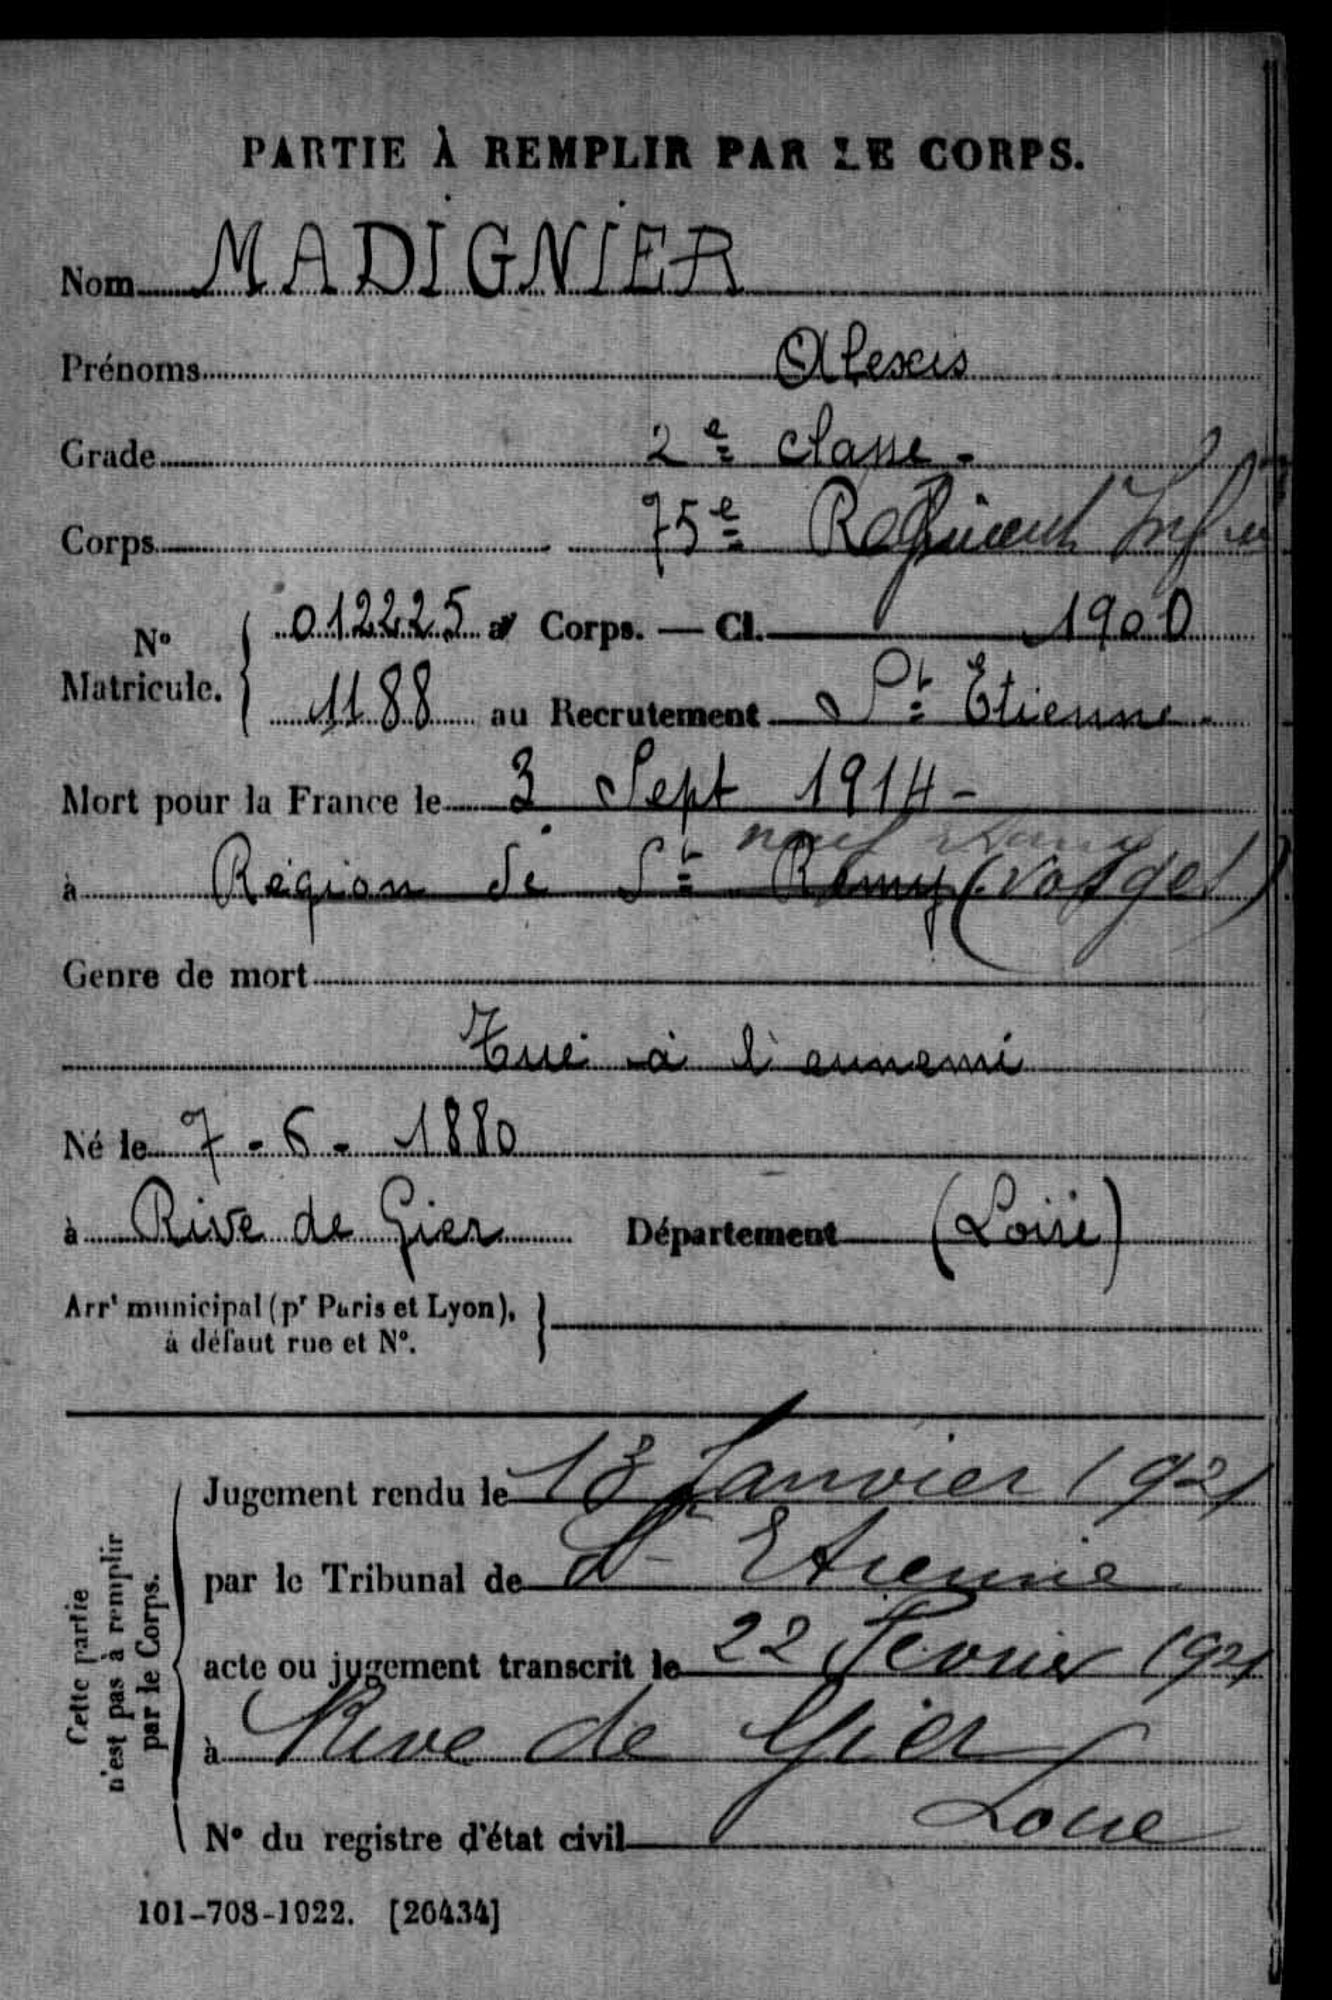 PARTIE À REMPLIR PAR LE CORPS.
Nom MADIGNIER
Prénoms Alexis
Grade 2e classe -
Corps 75e Régiment Infrie
No Matricule. { 012225 au Corps. — Cl. 1900
1188 au Recrutement St Etienne
Mort pour la France le 3 Sept 1914 -
à Région de St Rémy (Vosges)
Genre de mort
Tué à l'ennemi
Né le 7 - 6 - 1880
à Rive de Gier Département (Loire)
Arrt municipal (pr Paris et Lyon), }
à défaut rue et No.
Cette partie n'est pas à remplir par le Corps.
Jugement rendu le 13 Janvier 1921
par le Tribunal de St Etienne
acte ou jugement transcrit le 22 Février 1921
à Rive de Gier
Loire
No du registre d'état civil
101-708-1922. [26434]